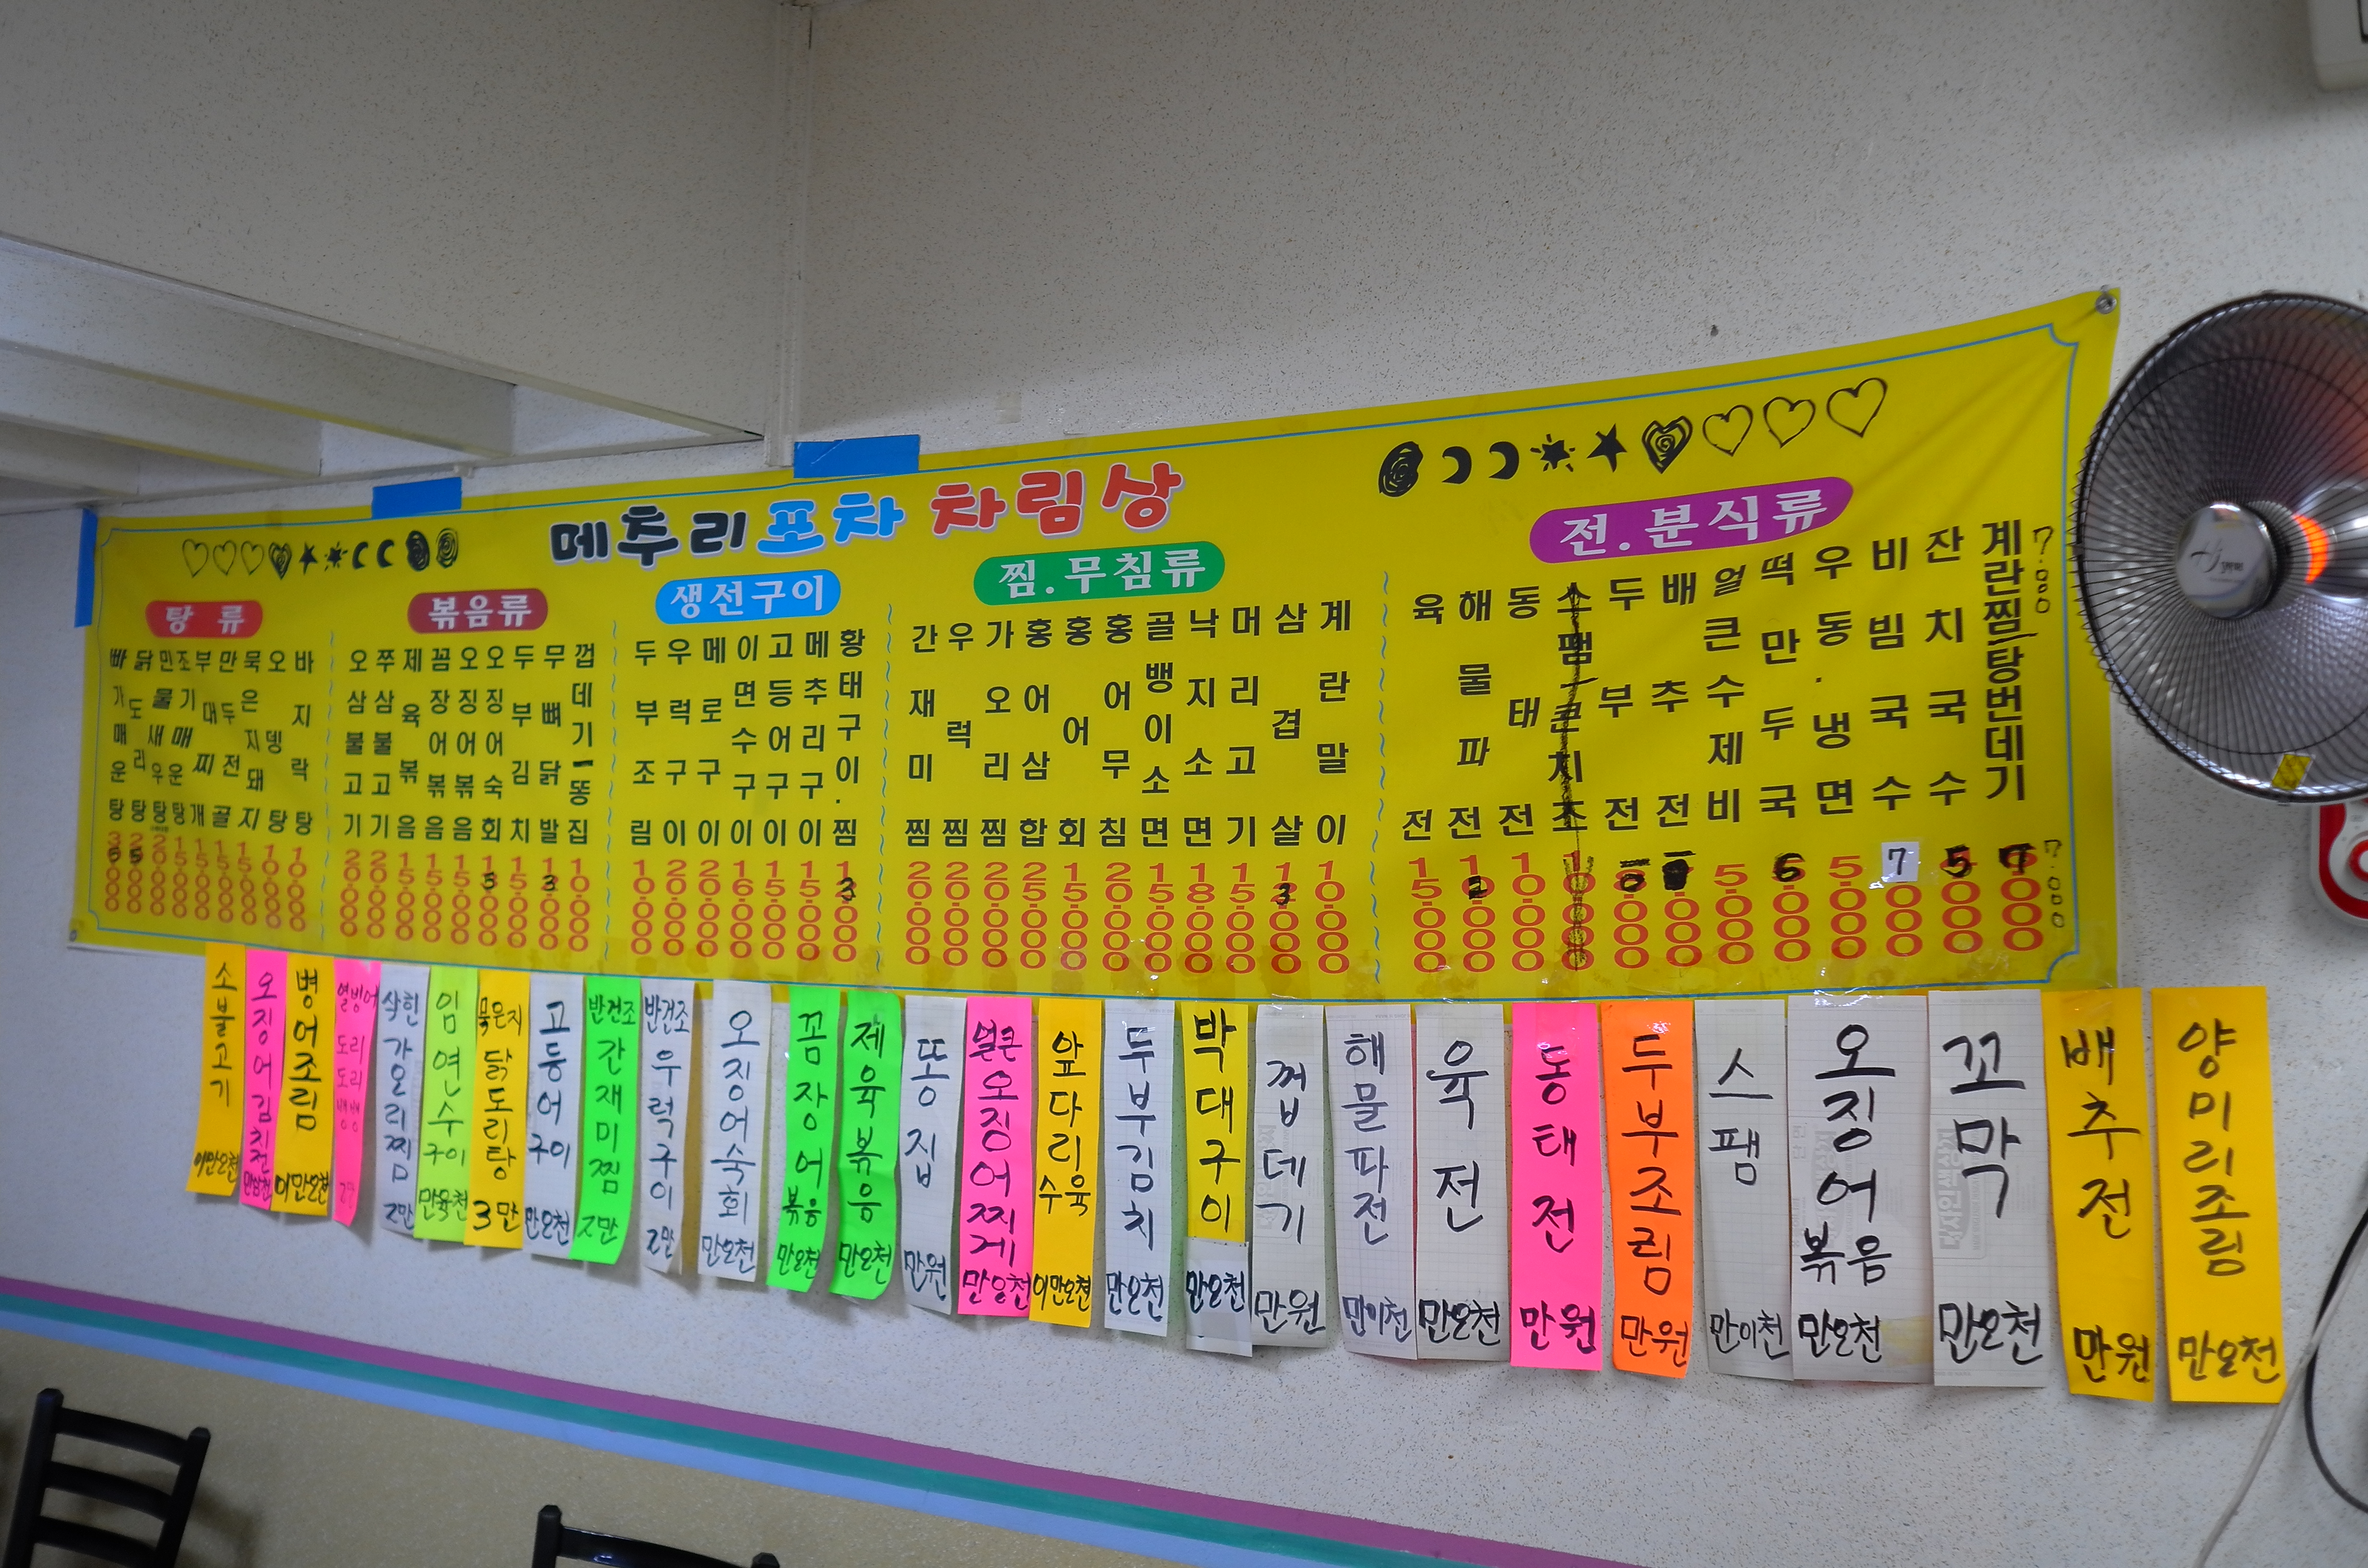 메추리포차 차림상
탕 류
빠가매운탕
닭도리탕 25.000
민물새우탕 20.000
조기매운탕 15.000
부대찌개 15.000
만두전골 15.000
묵은지돼지 15.000
오뎅탕 10.000
바지락탕 10.000
볶음류
오삼불고기 20.000
쭈삼불고기 20.000
제육볶음 15.000
꼼장어볶음 15.000
오징어볶음 15.000
오징어숙회 15.000
두부김치 15.000
무뼈닭발 13.000
껍데기-똥집 10.000
생선구이
두부조림 10.000
우럭구이 20.000
메로구이 20.000
이면수구이 16.000
고등어구이 15.000
메추리구이 15.000
황태구이.찜 13.000
찜.무침류
간재미찜 20.000
우럭찜 20.000
가오리찜 20.000
홍어삼합 25.000
홍어회 15.000
홍어무침 20.000
골뱅이소면 15.000
낙지소면 18.000
머리고기 15.000
삼겹살 13.000
계란말이 10.000
전.분식류
육전 15.000
해물파전 12.000
동태전 10.000
두부전
배추전
얼큰수제비 5.000
떡만두국 6.000
우동.냉면 5.000
비빔국수 7.000
잔치국수 5.000
계란찜/탕번데기 7.000
7.000
7.000
소불고기 이만오천
오징어김치전 만삼천
병어조림 이만오천
열빙어 도리도리뱅뱅
삭힌 가오리찜 2만
임연수구이 만육천
묵은지 닭도리탕 3만
고등어구이 만오천
반건조 간재미찜 2만
반건조 우럭구이 2만
오징어숙회 만오천
꼼장어볶음 만오천
제육볶음 만오천
똥집 만원
얼큰오징어찌게 만오천
앞다리수육 이만오천
두부김치 만오천
박대구이 만오천
껍데기 만원
해물파전 만이천
육전 만오천
동태전 만원
두부조림 만원
스팸 만이천
오징어볶음 만오천
꼬막 만오천
배추전 만원
양미리조림 만오천